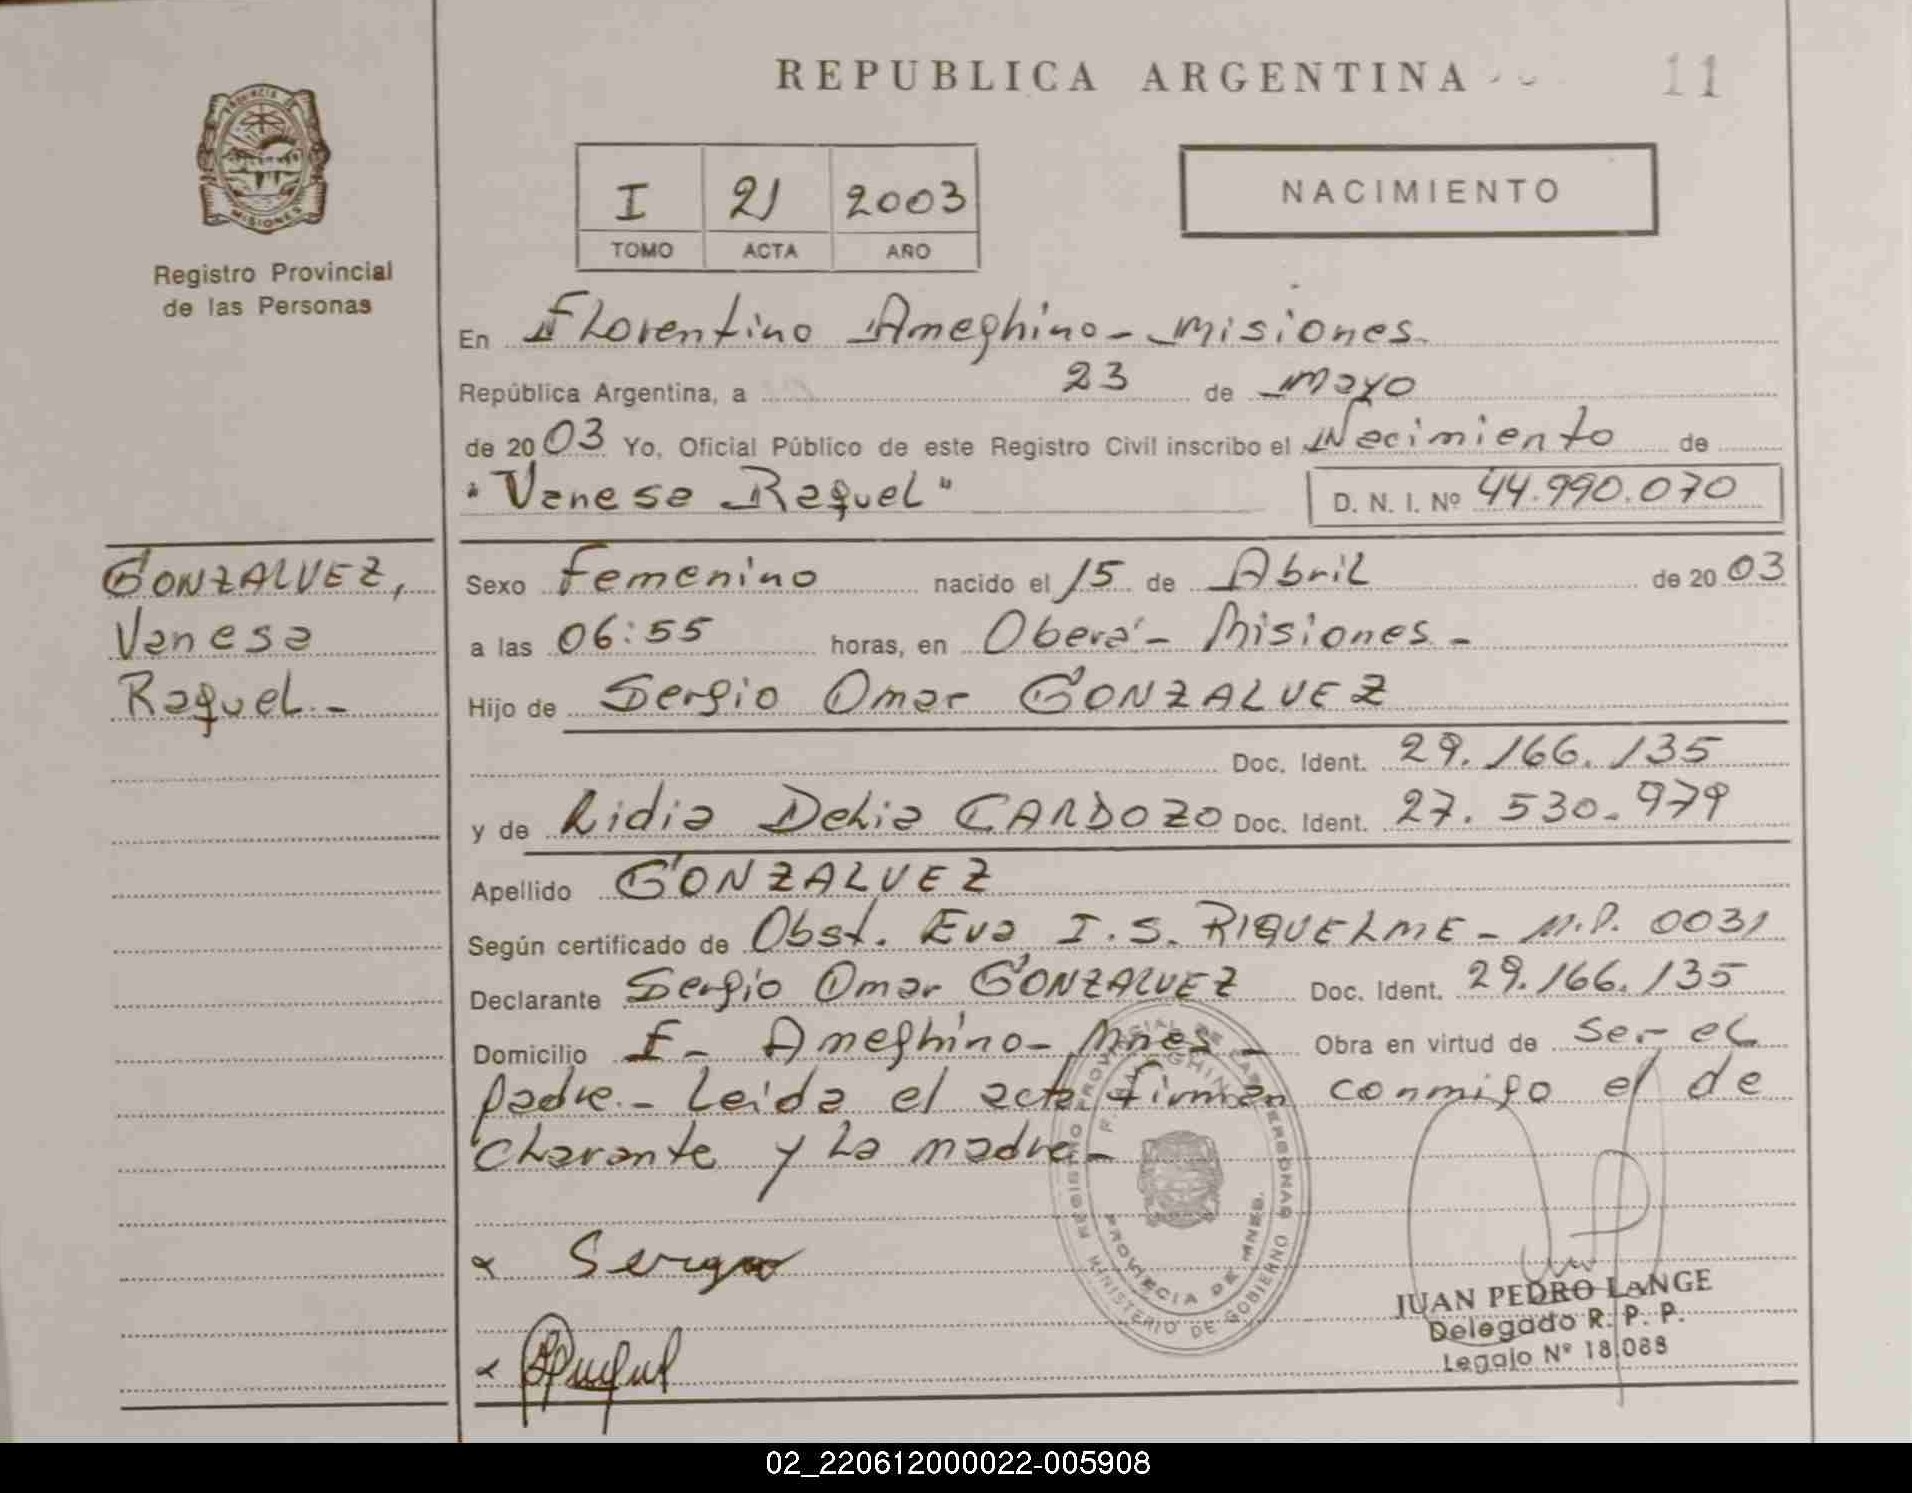 REPUBLICA ARGENTINA
11
PROVINCIA DE
MISIONES
Registro Provincial
de las Personas
I 21 2003
TOMO ACTA AÑO
NACIMIENTO
En Florentino Ameghino - Misiones.
República Argentina, a 23 de Mayo
de 2003 Yo, Oficial Público de este Registro Civil inscribo el Nacimiento de
"Vanesa Raquel" D. N. I. Nº 44.990.070
GONZALVEZ,
Vanesa
Raquel.-
Sexo Femenino nacido el 15 de Abril de 2003
a las 06:55 horas, en Oberá - Misiones -
Hijo de Sergio Omar GONZALVEZ
Doc. Ident. 29.166.135
y de Lidia Delia CARDOZO Doc. Ident. 27.530.979
Apellido GONZALVEZ
Según certificado de Obst. Eva I.S. RIQUELME - M.P. 0031
Declarante Sergio Omar GONZALVEZ Doc. Ident. 29.166.135
Domicilio F- Ameghino - Mnes - Obra en virtud de Ser el
padre.- Leida el acta firman conmigo el de
clarante y la madre -
REGISTRO PROVINCIAL DE LAS PERSONAS
MINISTERIO DE GOBIERNO
F. AMEGHINO
PROVINCIA DE MNES.
x Sergio
x
JUAN PEDRO LANGE
Delegado R. P. P.
Legajo Nº 18.088
02_220612000022-005908